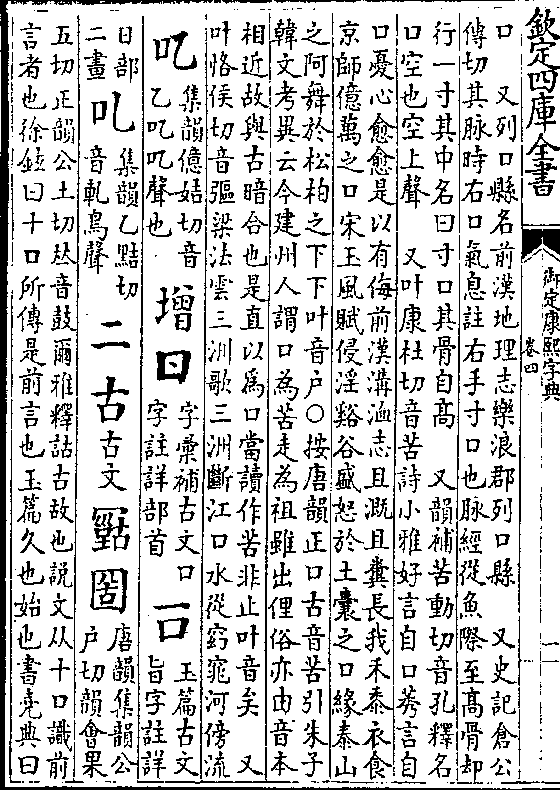 欽定四庫全書
御定康熙字典
卷四
一
口　又列口縣名前漢地理志樂浪郡列口縣　又史記倉公
傳切其脉時右口氣息註右手寸口也脉經從魚際至高骨却
行一寸其中名曰寸口其骨自高　又韻補苦動切音孔釋名
口空也空上聲　又叶康杜切音苦詩小雅好言自口莠言自
口憂心愈愈是以有侮前漢溝洫志且溉且糞長我禾黍衣食
京師億萬之口宋玉風賦侵淫谿谷盛怒於土囊之口緣泰山
之阿舞於松柏之下下叶音户○按唐韻正口古音苦引朱子
韓文考異云今建州人謂口為苦走為祖雖出俚俗亦由音本
相近故與古暗合也是直以為口當讀作苦非止叶音矣　又
叶恪侯切音彄梁法雲三洲歌三洲斷江口水從窈窕河傍流
𠮙
集韻億姞切音
乙𠮙𠮙聲也
增
字彚補古文口
字註詳部首
𠮛
玉篇古文
旨字註詳
日部
二畫
集韻乙黠切
音軋鳥聲
二 古 古文
唐韻集韻公
户切韻會果
五切正韻公土切𠀤音鼓爾雅釋詁古故也說文从十口識前
言者也徐鉉曰十口所傳是前言也玉篇久也始也書堯典曰